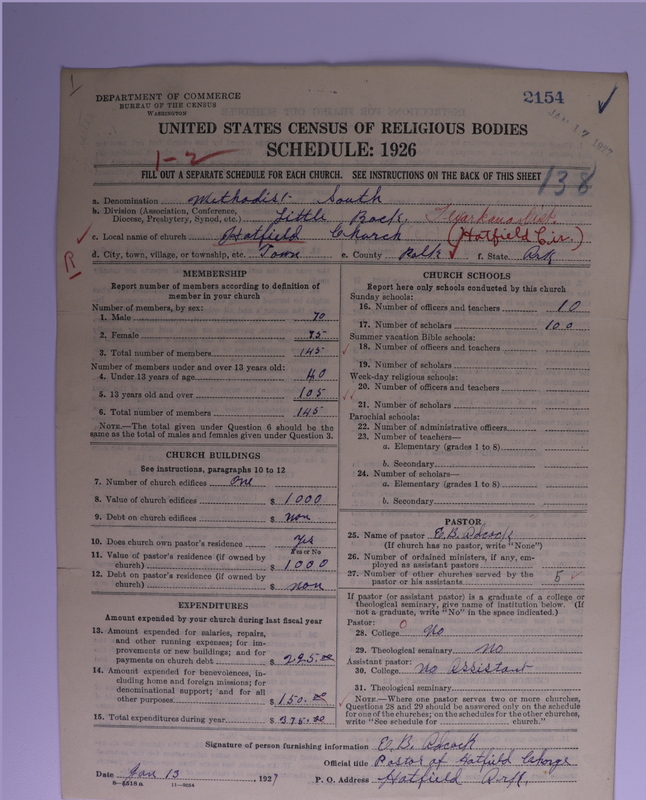 1
DEPARTMENT OF COMMERCE
BUREAU OF THE CENSUS
WASHINGTON
2154
Jan 17 1927
UNITED STATES CENSUS OF RELIGIOUS BODIES
SCHEDULE: 1926
1-2
FILL OUT A SEPARATE SCHEDULE FOR EACH CHURCH. SEE INSTRUCTIONS ON THE BACK OF THIS SHEET
138
a. Denomination Methodist South
b. Division (Association, Conference, Diocese, Presbytery, Synod, etc.) Little Rock. Texarkana Dist.
c. Local name of church Hatfield Church (Hatfield Cir.)
R
d. City, town, village, or township, etc. Town e. County Polk f. State Ark
MEMBERSHIP
Report number of members according to definition of
member in your church
Number of members, by sex:
1. Male 70
2. Female 75
3. Total number of members 145
Number of members under and over 13 years old:
4. Under 13 years of age 40
5. 13 years old and over 105
6. Total number of members 145
NOTE.—The total given under Question 6 should be the
same as the total of males and females given under Question 3.
CHURCH BUILDINGS
See instructions, paragraphs 10 to 12
7. Number of church edifices One
8. Value of church edifices $ 1000
9. Debt on church edifices $ non
10. Does church own pastor's residence yes
Yes or No
11. Value of pastor's residence (if owned by
church) $ 1000
12. Debt on pastor's residence (if owned by
church) $ non
EXPENDITURES
Amount expended by your church during last fiscal year
13. Amount expended for salaries, repairs,
and other running expenses; for im-
provements or new buildings; and for
payments on church debt $ 225.00
14. Amount expended for benevolences, in-
cluding home and foreign missions; for
denominational support; and for all
other purposes $ 150.00
15. Total expenditures during year $ 375.00
CHURCH SCHOOLS
Report here only schools conducted by this church
Sunday schools:
16. Number of officers and teachers 10
17. Number of scholars 100
Summer vacation Bible schools:
18. Number of officers and teachers
19. Number of scholars
Week-day religious schools:
20. Number of officers and teachers
21. Number of scholars
Parochial schools:
22. Number of administrative officers
23. Number of teachers—
a. Elementary (grades 1 to 8)
b. Secondary
24. Number of scholars—
a. Elementary (grades 1 to 8)
b. Secondary
PASTOR
25. Name of pastor E. B. Adcock
(If church has no pastor, write "None")
26. Number of ordained ministers, if any, em-
ployed as assistant pastors
27. Number of other churches served by the
pastor or his assistants 5
If pastor (or assistant pastor) is a graduate of a college or
theological seminary, give name of institution below. (If
not a graduate, write "No" in the space indicated.)
Pastor: 0
28. College No
29. Theological seminary No
Assistant pastor:
30. College No Assistant
31. Theological seminary
NOTE.—Where one pastor serves two or more churches,
Questions 28 and 29 should be answered only on the schedule
for one of the churches; on the schedules for the other churches,
write "See schedule for church."
Signature of person furnishing information E. B. Adcock
Official title Pastor of Hatfield Charge
Date Jan 13, 1927 P. O. Address Hatfield Ark.
8-5518a 11-9054